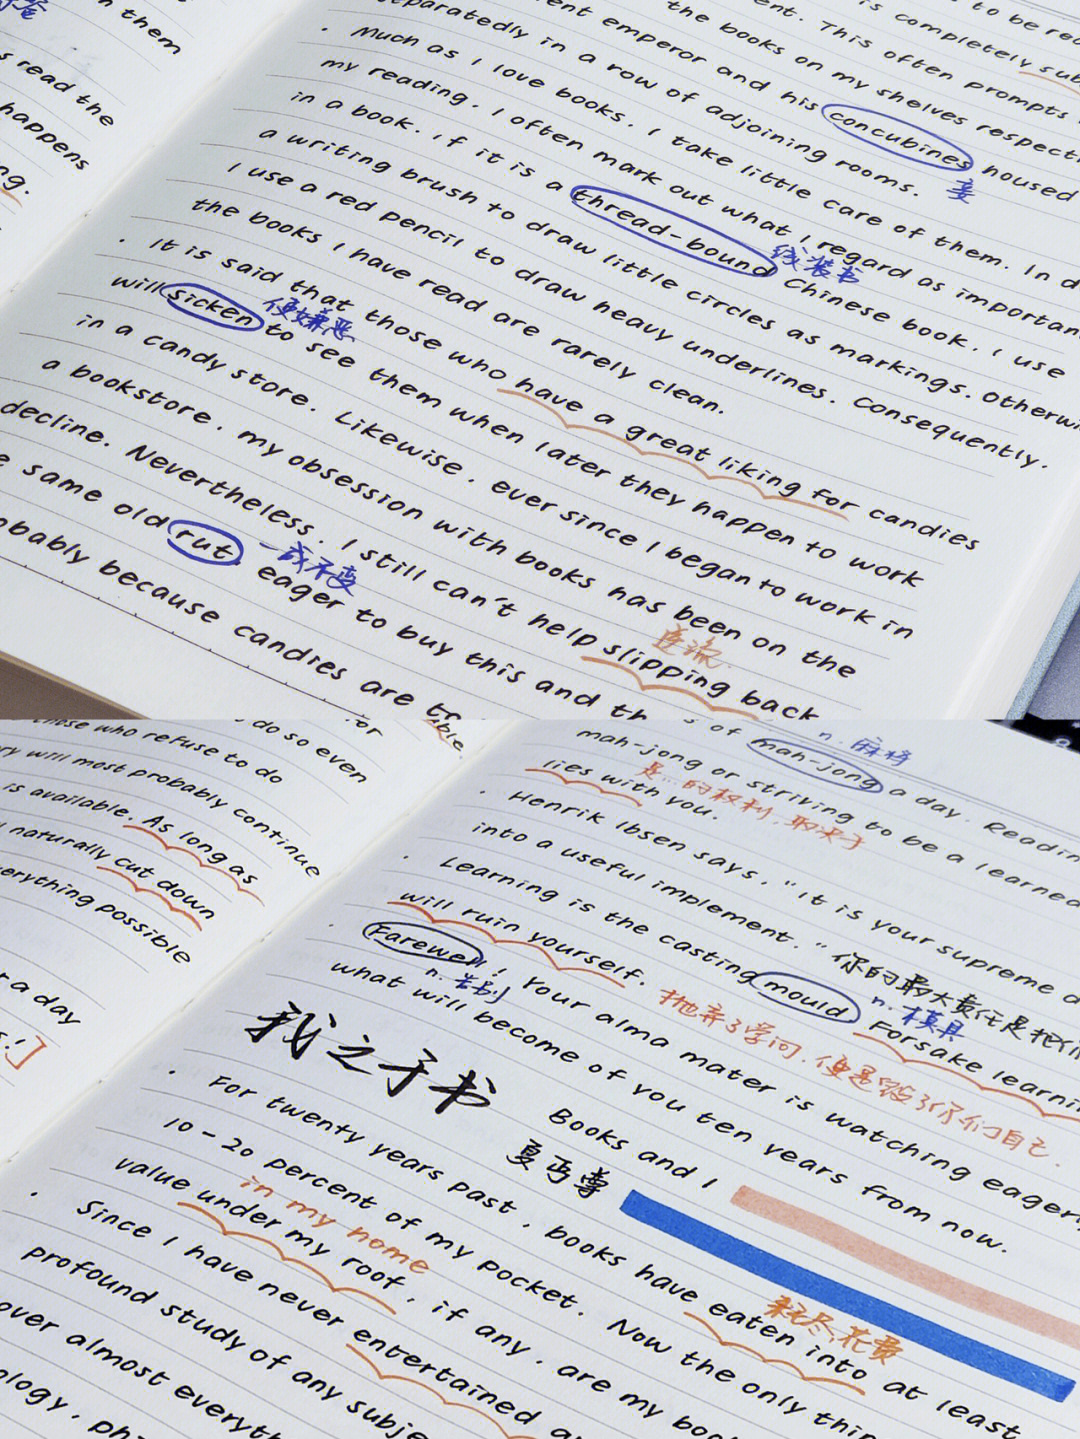 n them
s read the
happens
ng.
to be rea
is completely sub
ent. This often prompts
the books on my shelves respecti
ent emperor and his concubines housed
妾
separatedly in a row of adjoining rooms.
· Much as I love books, I take little care of them. In d
my reading, I often mark out what I regard as importan
in a book. If it is a thread-bound Chinese book, I use
线装书
a writing brush to draw little circles as markings. Otherwi
I use a red pencil to draw heavy underlines. Consequently,
the books I have read are rarely clean.
· It is said that those who have a great liking for candies
will sicken to see them when later they happen to work
使嫌恶
in a candy store. Likewise, ever since I began to work in
a bookstore, my obsession with books has been on the
decline. Nevertheless, I still can't help slipping back
逆流
e same old rut, eager to buy this and th
一成不变
obably because candies are to
do so even
those who refuse to do
ry will most probably continue
is available. As long as
naturally cut down
erything possible
r a day
s!]
s of mah-jong a day. Readin
n. 麻将
mah-jong or striving to be a learned
lies with you.
是...的权利,取决于
· Henrik Ibsen says, "It is your supreme d
into a useful implement." 你的最大责任是把你
· Learning is the casting mould. Forsake learnin
n. 模具
will ruin yourself. 抛弃了学问,便是毁了你们自己.
· Farewell! Your alma mater is watching eager
n. 告别
what will become of you ten years from now.
我之于书 Books and I
夏丏尊
· For twenty years past, books have eaten into at least
耗尽,花费
10-20 percent of my pocket. Now the only thin
value under my roof, if any, are my boo
in my home
· Since I have never entertained a
profound study of any subje
over almost everyth
ology, ph